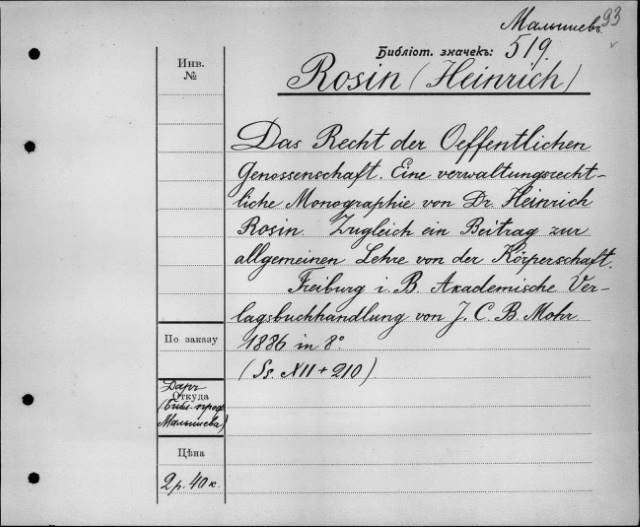 Малышевъ 93
Библіот. значекъ: 519
Инв.
№
Rosin (Heinrich)
Das Recht der Oeffentlichen
Genossenschaft. Eine verwaltungsrecht-
liche Monographie von Dr. Heinrich
Rosin. Zugleich ein Beitrag zur
allgemeinen Lehre von der Körperschaft.
Freiburg i. B. Akademische Ver-
lagsbuchhandlung von J. C. B. Mohr
По заказу
1886 in 8°
(Ss. XII + 210)
Даръ
Откуда
(Библ. проф.
Малышева)
Цѣна
2 р. 40 к.